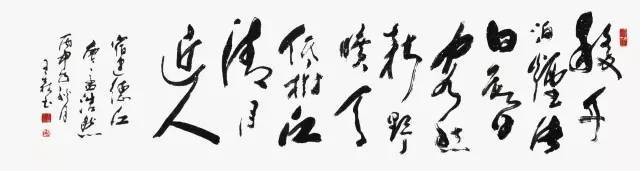 移舟
泊煙渚
日暮
客愁
新野
曠天
低樹江
清月
近人
宿建德江
唐孟浩然
丙申秋月
王书